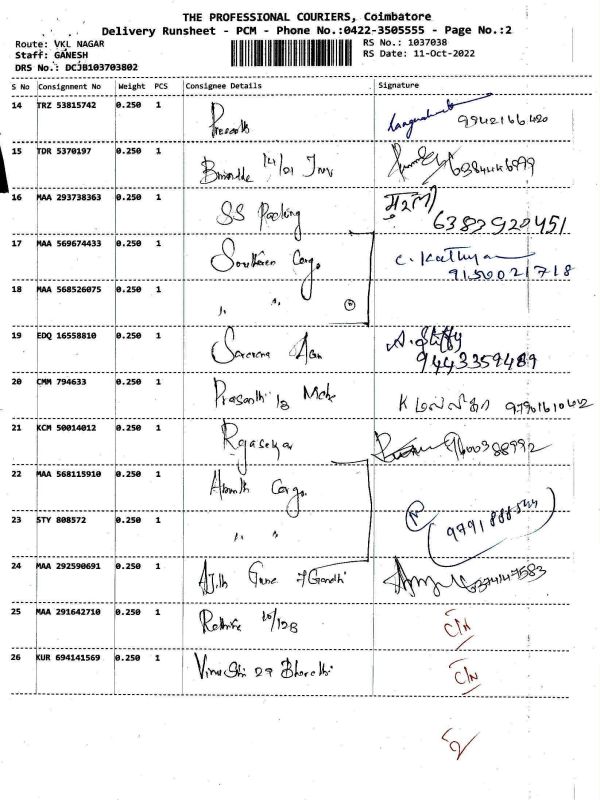 THE PROFESSIONAL COURIERS, Coimbatore
Delivery Runsheet - PCM - Phone No.:0422-3505555 - Page No.:2
Route: VKL NAGAR
Staff: GANESH
DRS No.: DCJB103703802
RS No.: 1037038
RS Date: 11-Oct-2022
S No Consignment No Weight PCS Consignee Details Signature
14 TRZ 53815742 0.250 1 9942166420
15 TDR 5370197 0.250 1
16 MAA 293738363 0.250 1 SS Packing முரளி 6383920451
17 MAA 569674433 0.250 1 Southern Cargo C. Kathy 9150021718
18 MAA 568526075 0.250 1 " "
19 EDQ 16558810 0.250 1 9443359489
20 CMM 794633 0.250 1 Prasanth K மல்லிகா
21 KCM 50014012 0.250 1 Rgasekar 9600388992
22 MAA 568115910 0.250 1 Cargo
23 STY 808572 0.250 1 " " 9791888544
24 MAA 292590691 0.250 1 Gandhi 6374147583
25 MAA 291642710 0.250 1 C/N
26 KUR 694141569 0.250 1 29 Bharathi C/N
2